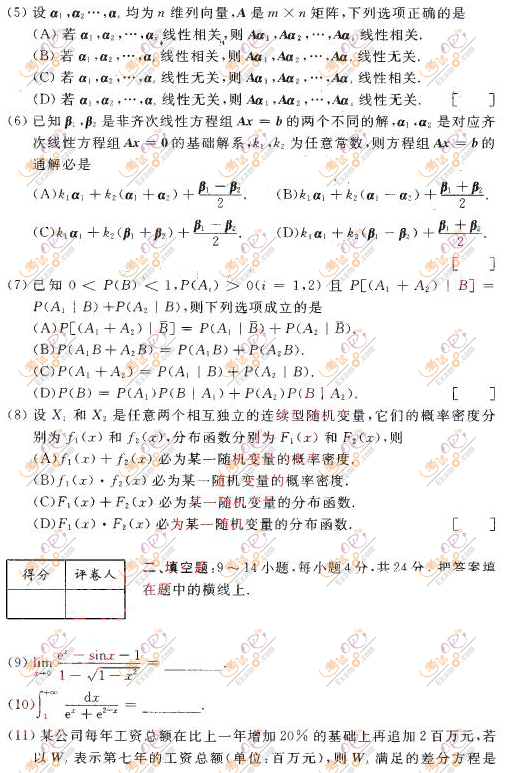 (5) 设 α₁,α₂⋯,αₛ 均为 n 维列向量,A 是 m × n 矩阵,下列选项正确的是
(A) 若 α₁,α₂,⋯,αₛ 线性相关,则 Aα₁,Aα₂,⋯,Aαₛ 线性相关.
(B) 若 α₁,α₂,⋯,αₛ 线性相关,则 Aα₁,Aα₂,⋯,Aαₛ 线性无关.
(C) 若 α₁,α₂,⋯,αₛ 线性无关,则 Aα₁,Aα₂,⋯,Aαₛ 线性相关.
(D) 若 α₁,α₂,⋯,αₛ 线性无关,则 Aα₁,Aα₂,⋯,Aαₛ 线性无关. [ ]
(6) 已知 β₁,β₂ 是非齐次线性方程组 Ax = b 的两个不同的解,α₁,α₂ 是对应齐
次线性方程组 Ax = 0 的基础解系,k₁,k₂ 为任意常数,则方程组 Ax = b 的
通解必是
(A)k₁α₁ + k₂(α₁ + α₂) + (β₁ − β₂)/2. (B)k₁α₁ + k₂(α₁ − α₂) + (β₁ + β₂)/2.
(C)k₁α₁ + k₂(β₁ + β₂) + (β₁ − β₂)/2. (D)k₁α₁ + k₂(β₁ − β₂) + (β₁ + β₂)/2.
[ ]
(7) 已知 0 < P(B) < 1,P(Aᵢ) > 0(i = 1,2) 且 P[(A₁ + A₂) | B] =
P(A₁ | B) +P(A₂ | B),则下列选项成立的是
(A)P[(A₁ + A₂) | B̄] = P(A₁ | B̄) + P(A₂ | B̄).
(B)P(A₁B + A₂B) = P(A₁B) + P(A₂B).
(C)P(A₁ + A₂) = P(A₁ | B) + P(A₂ | B).
(D)P(B) = P(A₁)P(B | A₁) + P(A₂)P(B | A₂). [ ]
(8) 设 X₁ 和 X₂ 是任意两个相互独立的连续型随机变量,它们的概率密度分
别为 f₁(x) 和 f₂(x),分布函数分别为 F₁(x) 和 F₂(x),则
(A)f₁(x) + f₂(x) 必为某一随机变量的概率密度.
(B)f₁(x) · f₂(x) 必为某一随机变量的概率密度.
(C)F₁(x) + F₂(x) 必为某一随机变量的分布函数.
(D)F₁(x) · F₂(x) 必为某一随机变量的分布函数. [ ]
得分 评卷人
二、填空题:9～14小题,每小题4分,共24分. 把答案填
在题中的横线上.
(9) lim x→0 (eˣ − sinx − 1)/(1 − √(1 − x²)) = ________.
(10) ∫₁^{+∞} dx/(eˣ + e²⁻ˣ) = ________.
(11) 某公司每年工资总额在比上一年增加20%的基础上再追加2百万元,若
以 Wₜ 表示第七年的工资总额(单位:百万元),则 Wₜ 满足的差分方程是
考试吧
Exam8.com